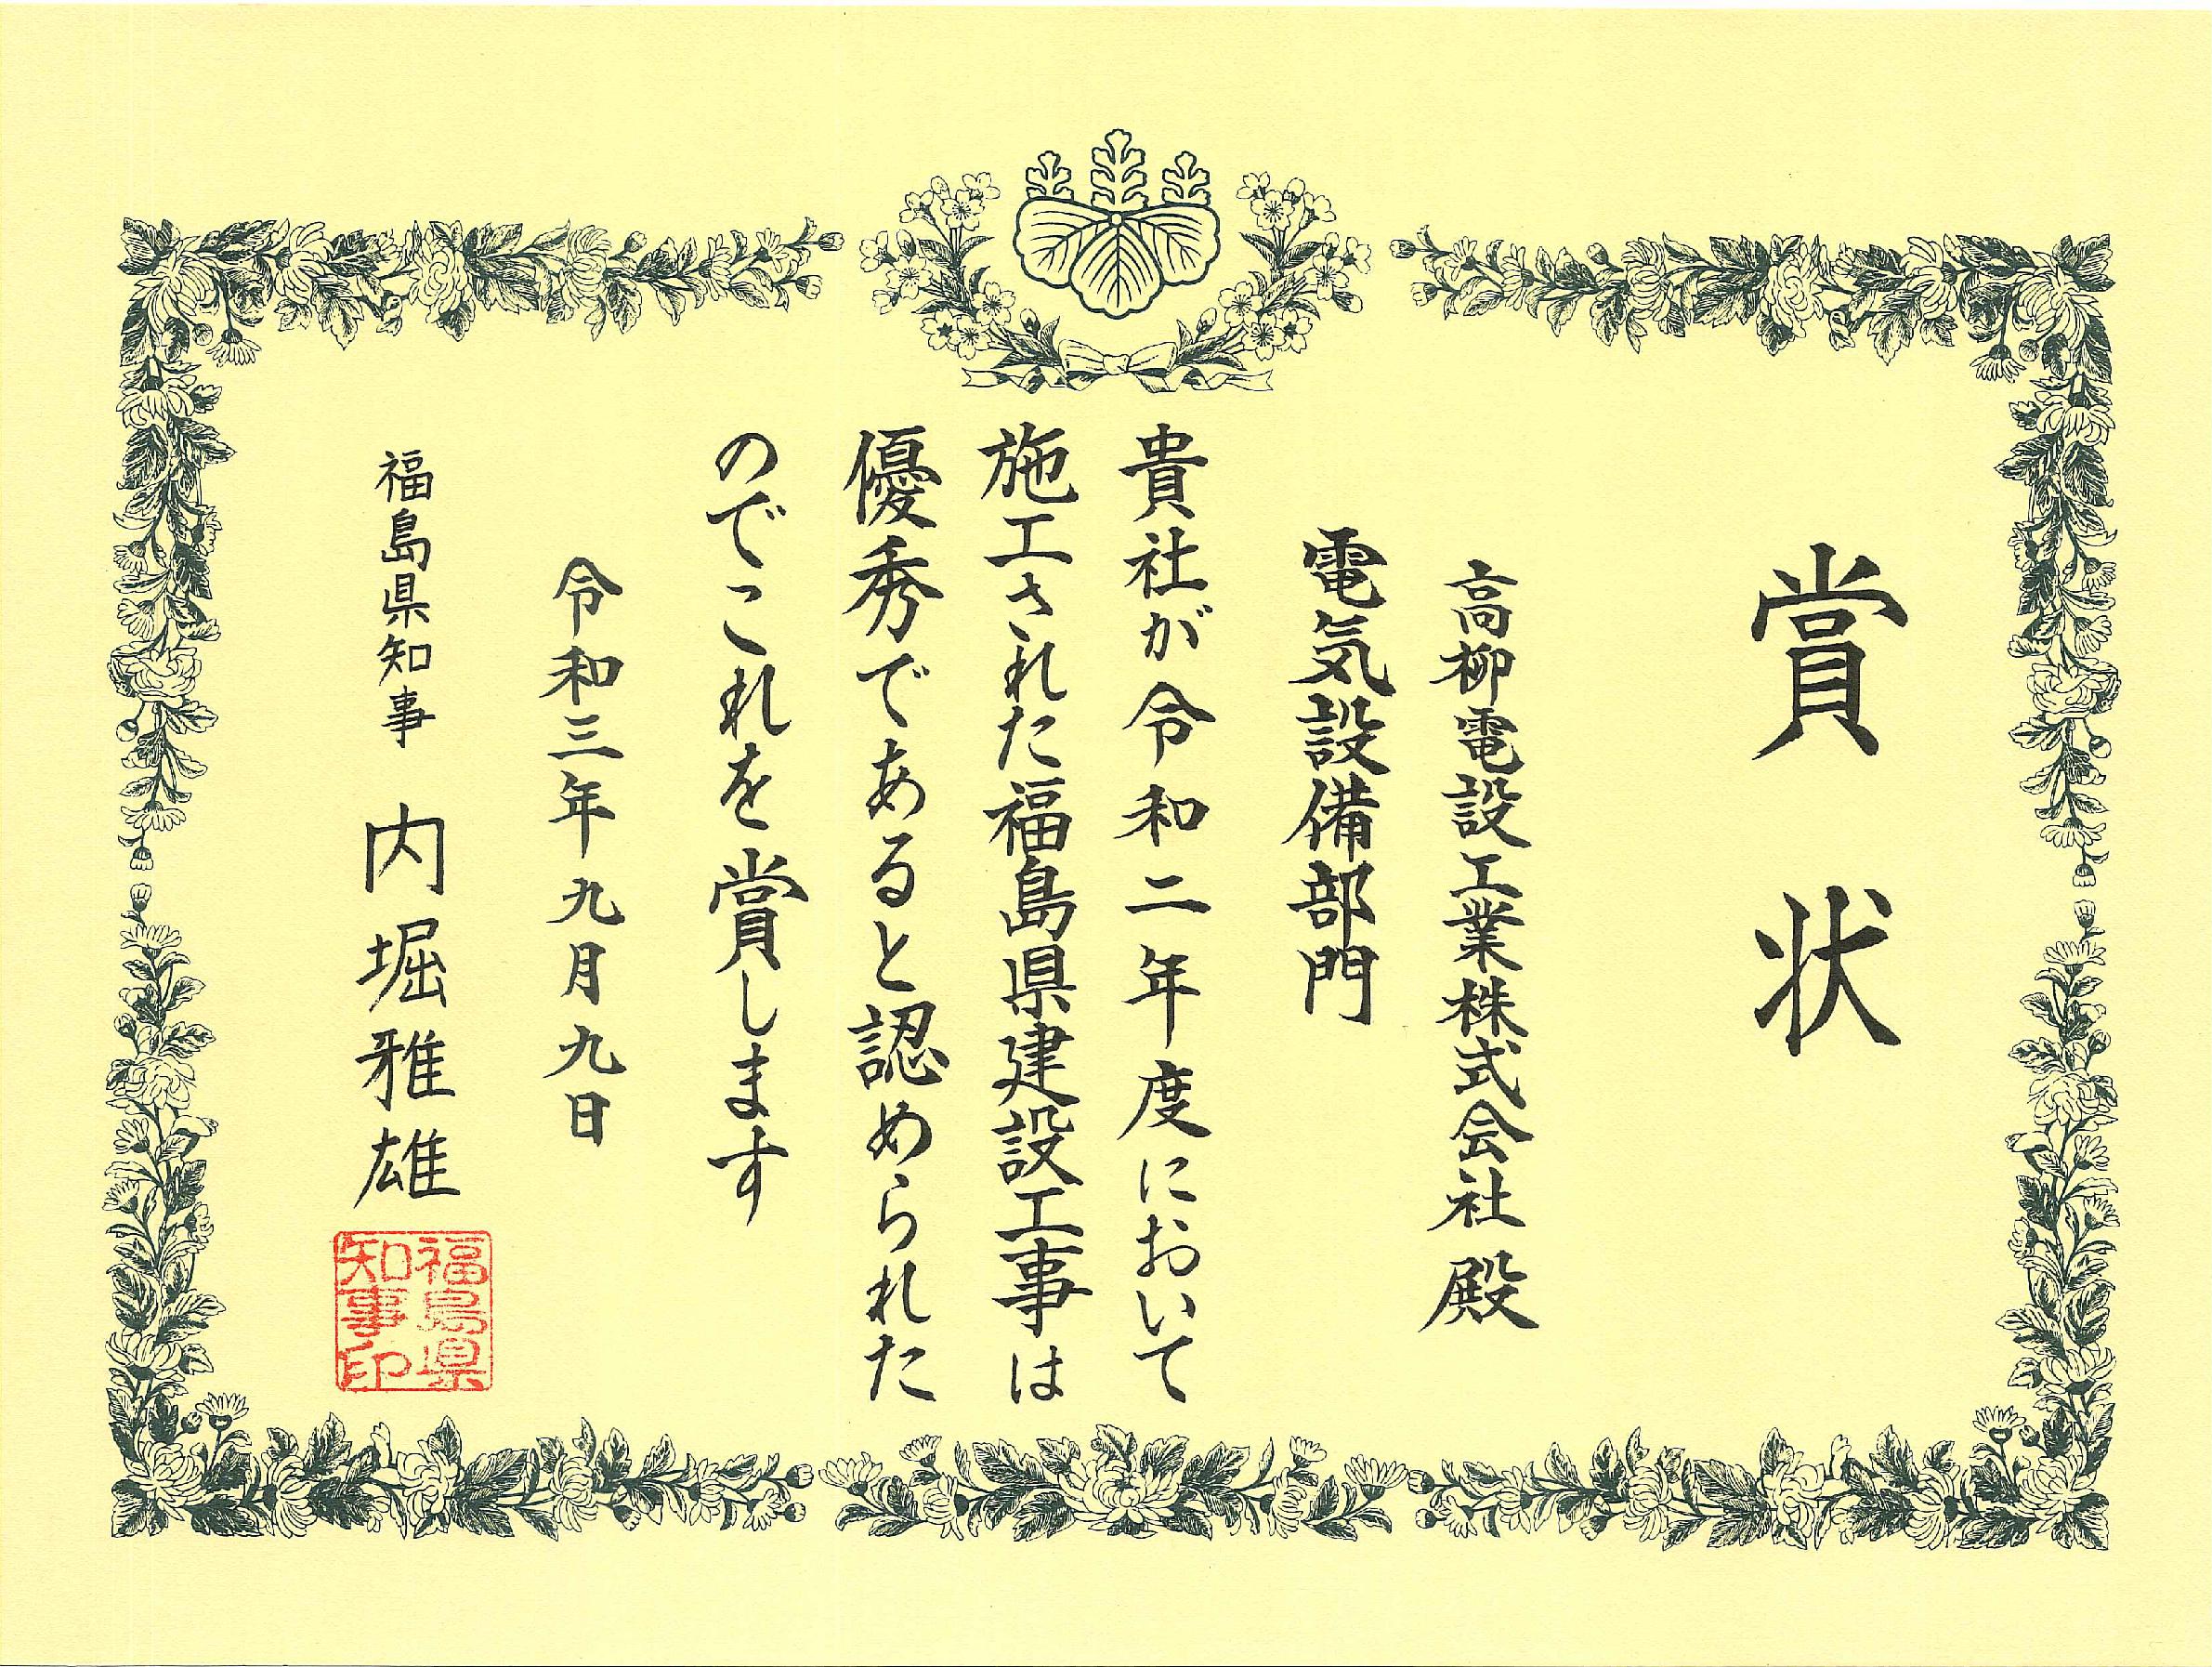 賞状
高柳電設工業株式会社殿
電気設備部門
貴社が令和二年度において
施工された福島県建設工事は
優秀であると認められた
のでこれを賞します
令和三年九月九日
福島県知事 内堀雅雄
福島県
知事印